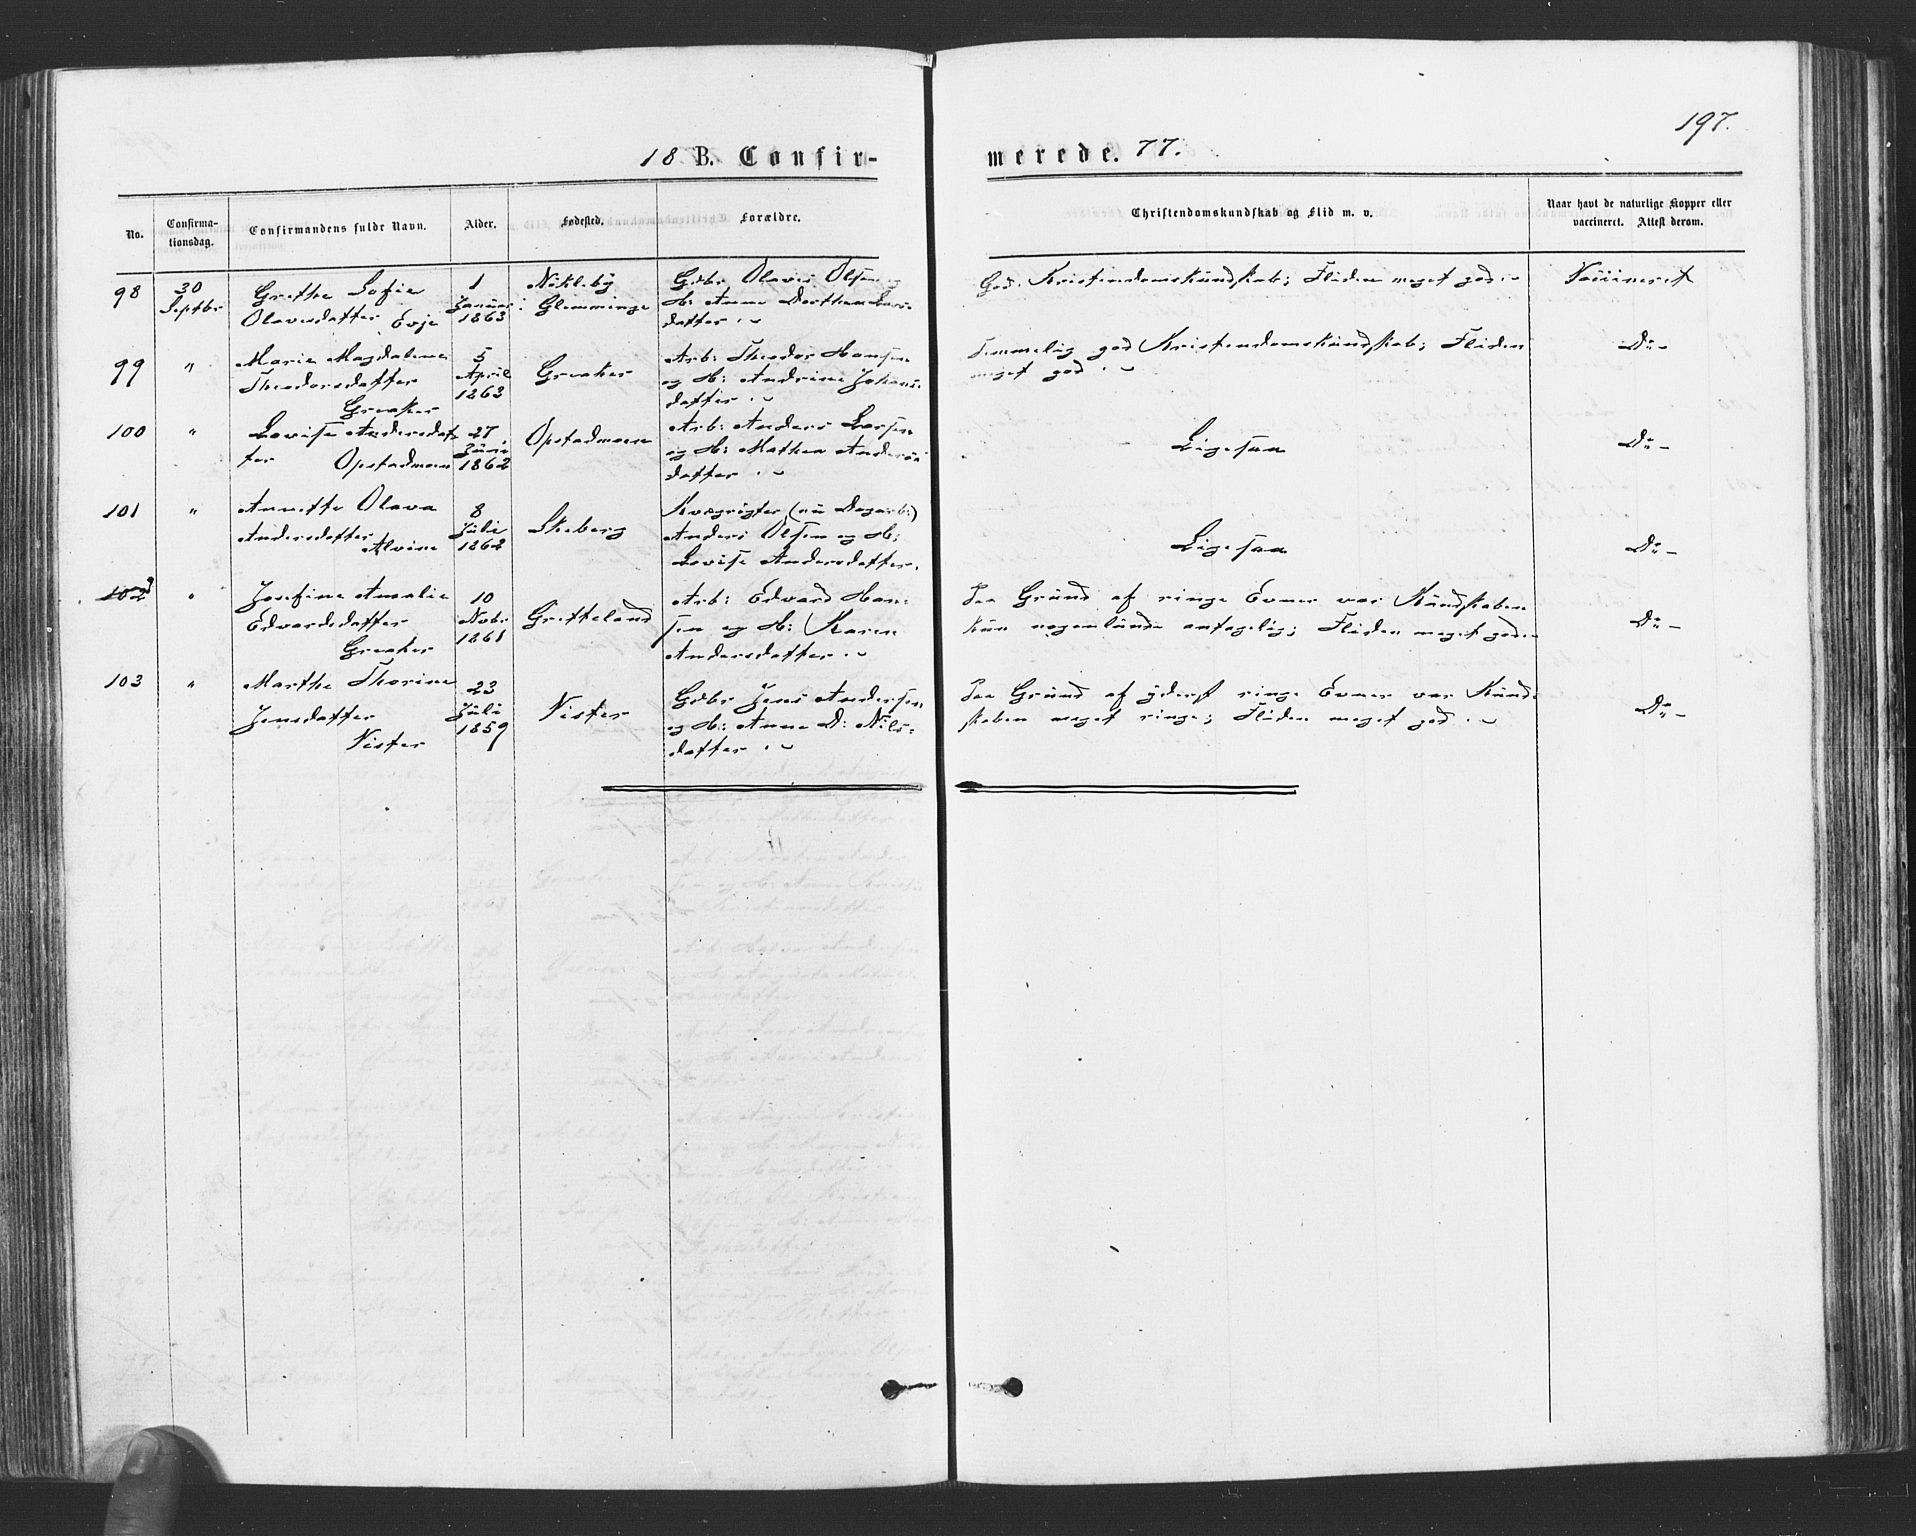 197.
18 B. Confir-
merede. 77.
No.
Confirma-
tionsdag.
Confirmandens fulde Navn.
Alder.
Fødested.
Forældre.
Christendomskundskab og Flid m. v.
Naar havt de naturlige Kopper eller
vaccineret. Attest derom.
98
30
Septbr
Grethe Sofie
Olavesdatter Evje
1
Januar
1863
Nøkleby
Glemminge
Gdbr Olaves Olsen og
H: Anne Dorthea Lars-
datter.
God Kristendomskundskab; Fliden meget god.
Vaccineret
99
"
Marie Magdalene
Theodorsdatter
Greaker
5
April
1863
Greaker
Arb: Theodor Hansen
og H: Andrine Johans-
datter.
Temmelig god Kristendomskundskab; Fliden
meget god.
Do -
100
"
Lovise Andersdat-
ter Opstadmoen
27
Juni
1862
Opstadmoen
Arb: Anders Larsen
og H: Mathea Anders-
datter.
Ligesaa
Do -
101
"
Annette Olava
Andersdatter
Alvine
8
Juli
1862
Skeberg
Kvægrigter (nu Dagarb:)
Anders Olsen og H:
Lovise Andersdatter.
Ligesaa
Do -
102
"
Josefine Amalie
Edvardsdatter
Greaker
10
Novbr
1861
Gretteland
Arb: Edvard Han-
sen og H: Karen
Andersdatter.
Paa Grund af ringe Evner var Kundskaben
kun nogenlunde antagelig; Fliden meget god.
Do -
103
"
Marthe Thorine
Jensdatter
Nister
23
Juli
1859
Nister
Gdbr Jens Andersen
og H: Anne D: Nils-
datter.
Paa Grund af yderst ringe Evner var Kund-
skaben meget ringe; Fliden meget god.
Do -